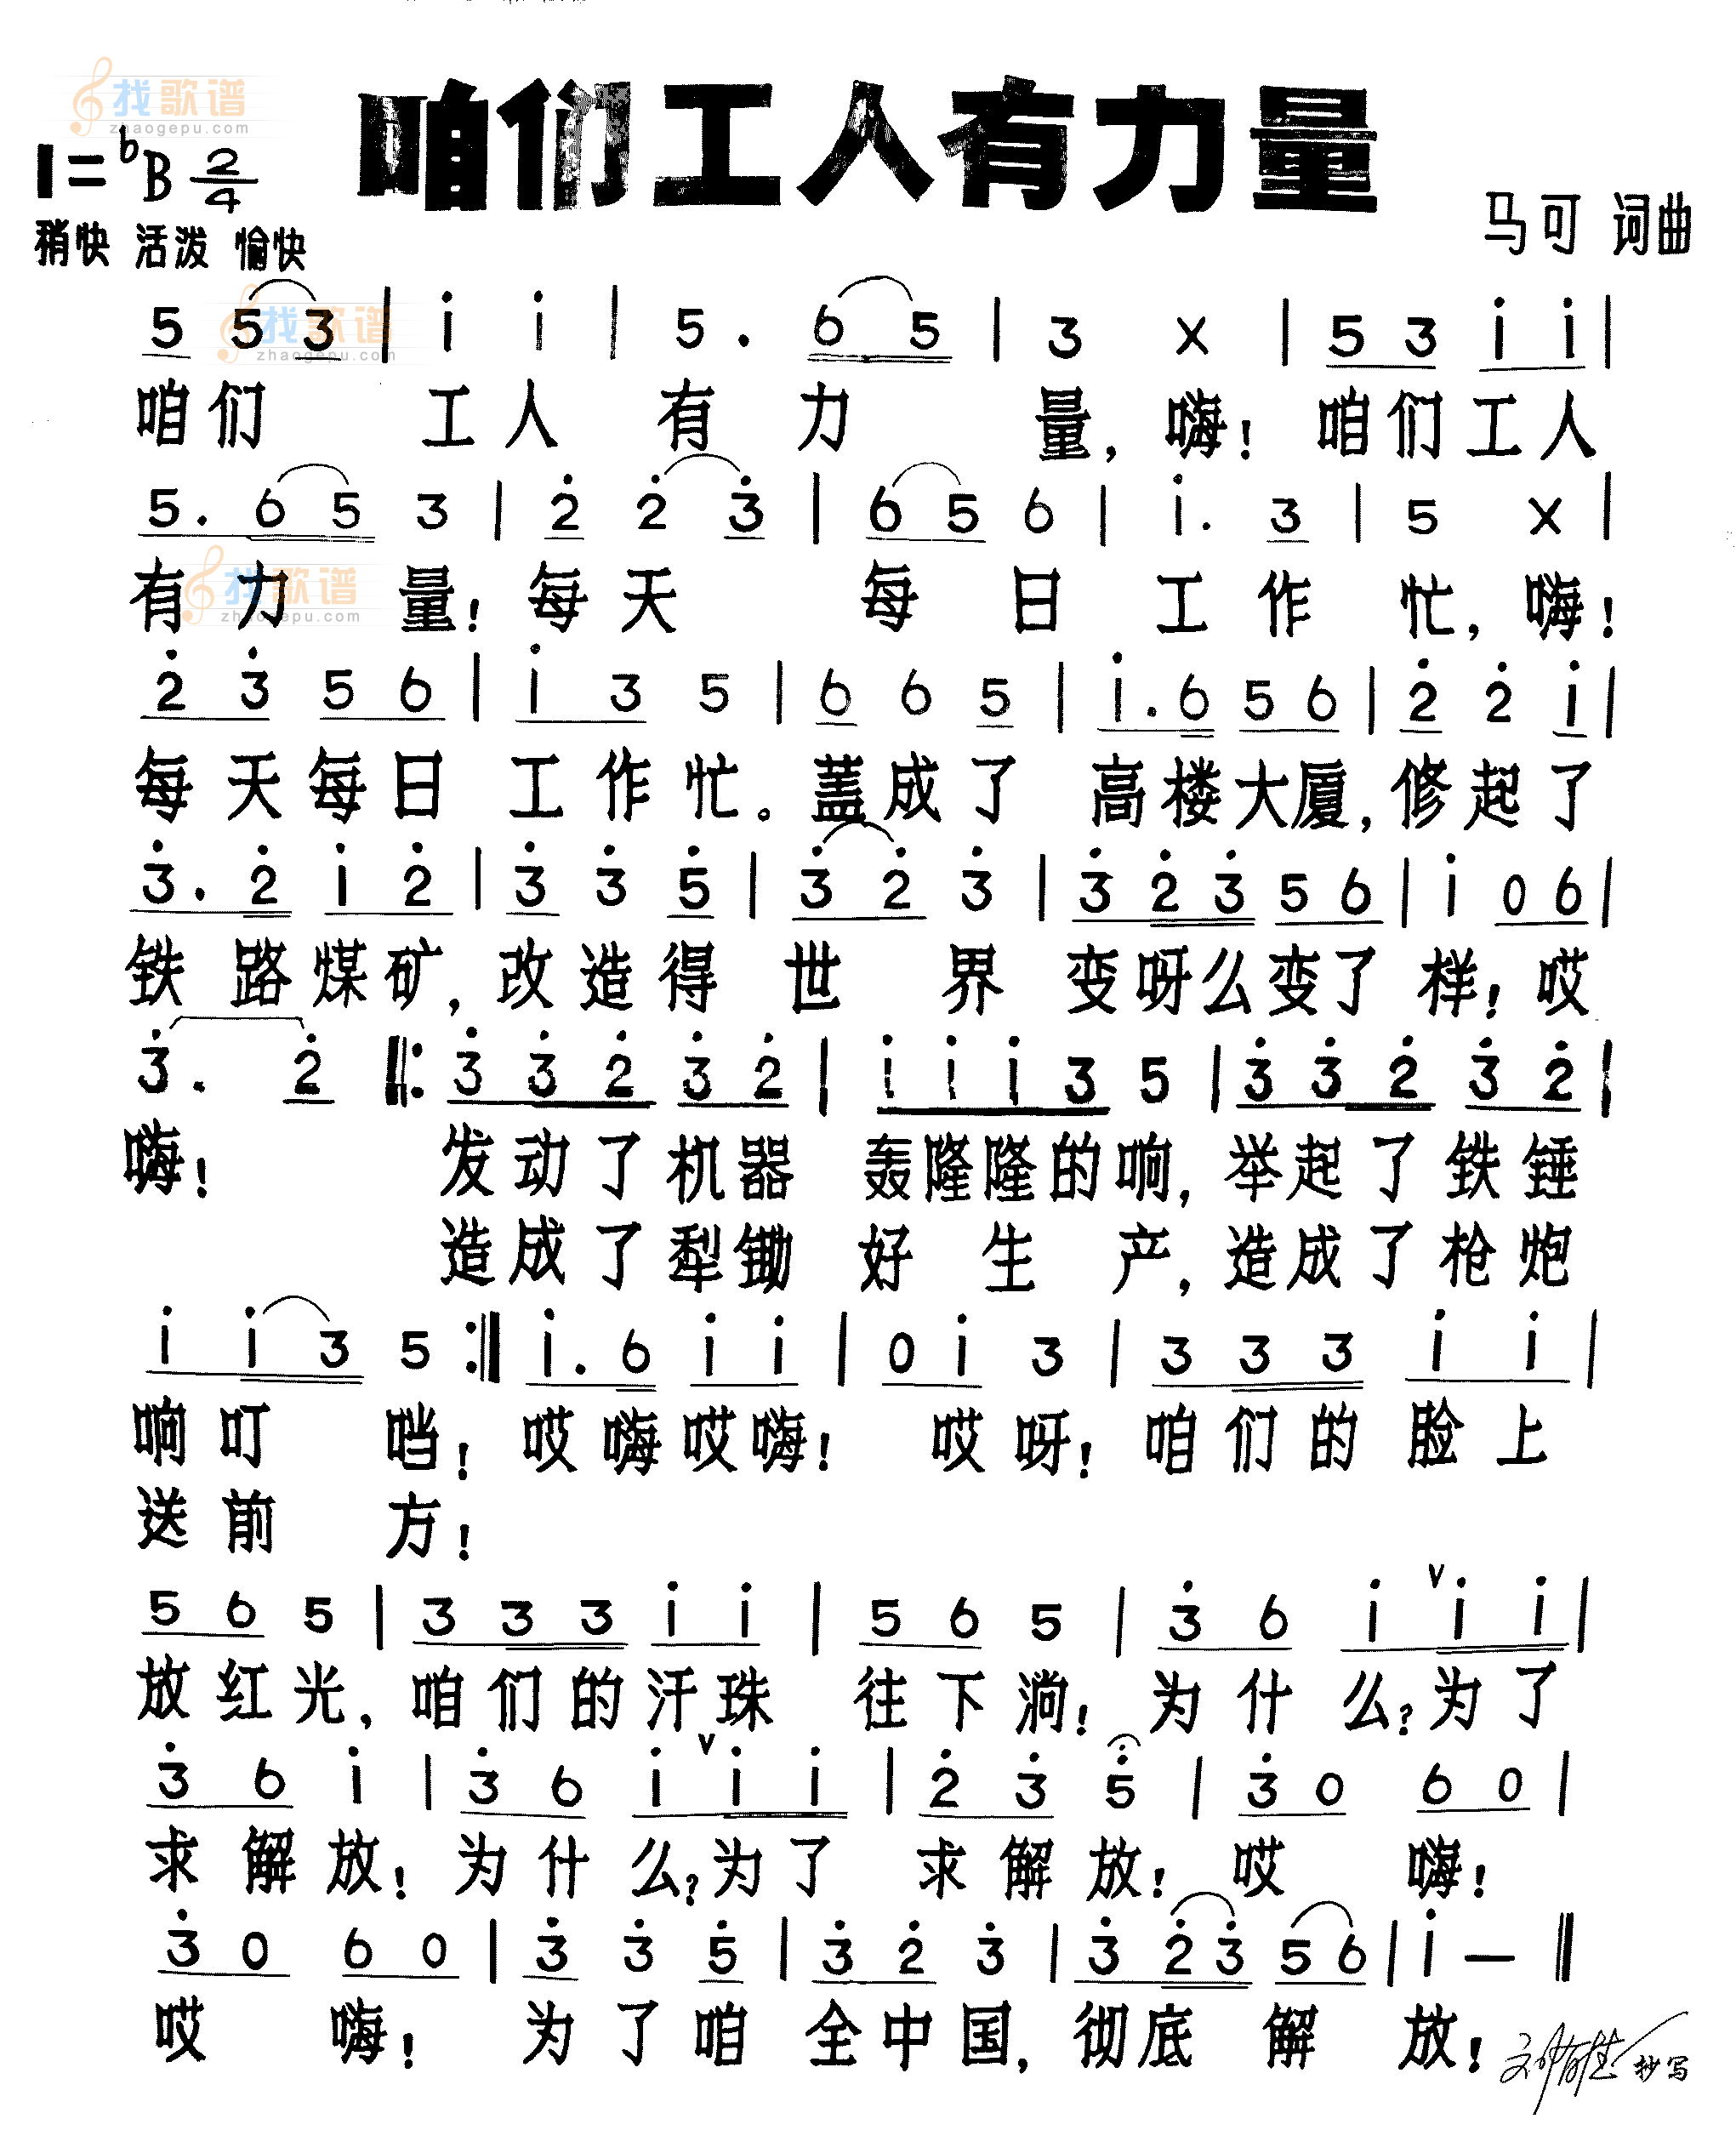 找歌谱
zhaogepu.com
咱们工人有力量
1=♭B 2/4
稍快 活泼 愉快
马可 词曲
5 5 3 | i i | 5 . 6 5 | 3 X | 5 3 i i |
找歌谱
zhaogepu.com
咱们 工人 有力 量，嗨！咱们工人
5 . 6 5 3 | 2̇ 2̇ 3̇ | 6 5 6 | i . 3 | 5 X |
有力 量！每天 每日 工作 忙，嗨！
找歌谱
zhaogepu.com
2̇ 3̇ 5 6 | i 3 5 | 6 6 5 | i . 6 5 6 | 2̇ 2̇ i |
每天每日 工作忙。蓋成了 高楼大厦，修起了
3̇ . 2̇ i 2̇ | 3̇ 3̇ 5̇ | 3̇ 2̇ 3̇ | 3̇ 2̇ 3̇ 5 6 | i 0 6 |
铁路煤矿，改造得 世界 变呀么变了样！哎
3̇ . 2̇ ‖: 3̇ 3̇ 2̇ 3̇ 2̇ | i i i 3 5 | 3̇ 3̇ 2̇ 3̇ 2̇ |
嗨！ 发动了机器 轰隆隆的响，举起了铁锤
造成了犁锄 好生产，造成了枪炮
i i 3 5 :‖ i . 6 i i | 0 i 3 | 3 3 3 i i |
响叮 咣！哎嗨哎嗨！ 哎呀！咱们的脸上
送前 方！
5 6 5 | 3 3 3 i i | 5 6 5 | 3̇ 6 i ∨ i i |
放红光，咱们的汗珠 往下淌！为什么？为了
3̇ 6 i | 3̇ 6 i ∨ i i | 2̇ 3̇ 5̇ | 3̇ 0 6 0 |
求解放！为什么？为了 求解放！哎 嗨！
3̇ 0 6 0 | 3̇ 3̇ 5̇ | 3̇ 2̇ 3̇ | 3̇ 2̇ 3̇ 5 6 | i — ‖
哎 嗨！ 为了咱 全中国，彻底 解 放！
抄写